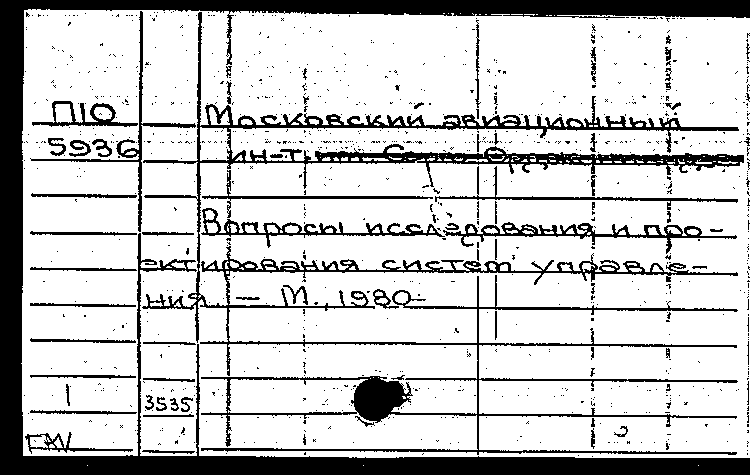 П10 Московский авиационный
5936 ин-т. им. Серго Орджоникидзе
Вопросы исследования и про-
ектирования систем управле-
ния. — М., 1980-
1 3535